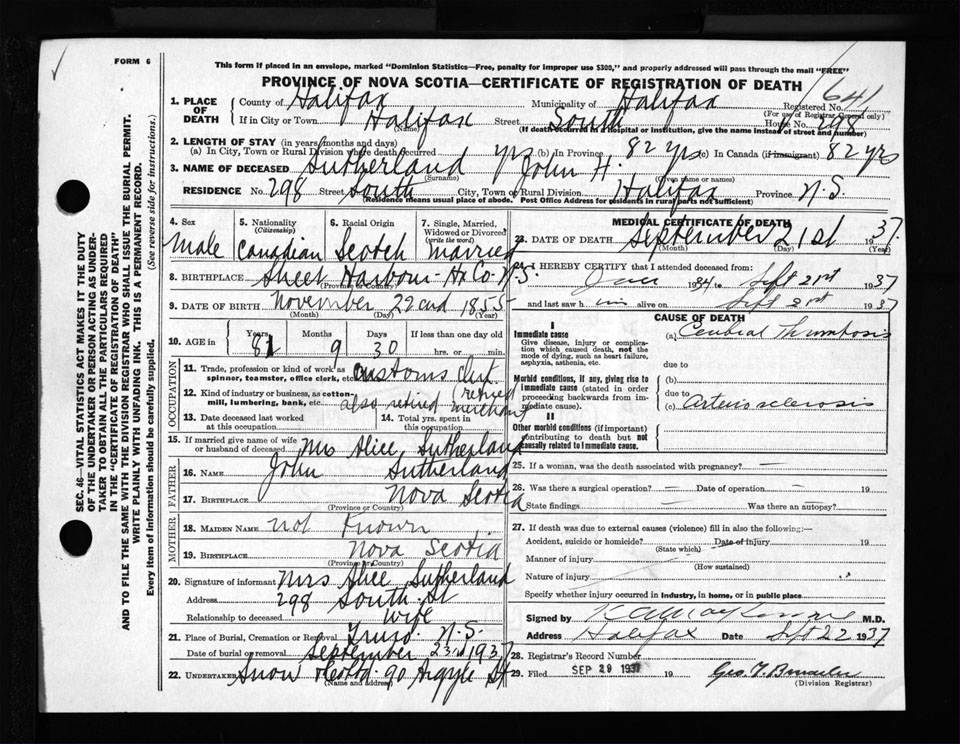 FORM 6
This form if placed in an envelope, marked "Dominion Statistics—Free, penalty for improper use $300," and properly addressed will pass through the mail "FREE"
PROVINCE OF NOVA SCOTIA—CERTIFICATE OF REGISTRATION OF DEATH
641
SEC. 46—VITAL STATISTICS ACT MAKES IT THE DUTY
OF THE UNDERTAKER OR PERSON ACTING AS UNDER-
TAKER TO OBTAIN ALL THE PARTICULARS REQUIRED
IN THE "CERTIFICATE OF REGISTRATION OF DEATH"
AND TO FILE THE SAME WITH THE DIVISION REGISTRAR WHO SHALL ISSUE THE BURIAL PERMIT.
WRITE PLAINLY WITH UNFADING INK. THIS IS A PERMANENT RECORD.
Every item of information should be carefully supplied. (See reverse side for instructions.)
1. PLACE OF DEATH County of Halifax Municipality of Halifax Registered No.
(For use of Registrar General only)
If in City or Town Halifax Street South House No. 298
(Name) (If death occurred in a hospital or institution, give the name instead of street and number)
2. LENGTH OF STAY (in years, months and days)
(a) In City, Town or Rural Division where death occurred yrs (b) In Province 82 yrs (c) In Canada (if immigrant) 82 yrs
3. NAME OF DECEASED Sutherland John H.
(Surname) (Given name or names)
RESIDENCE No. 298 Street South City, Town or Rural Division Halifax Province N.S.
(Residence means usual place of abode. Post Office Address for residents in rural parts not sufficient)
4. Sex Male
5. Nationality (Citizenship) Canadian
6. Racial Origin Scotch
7. Single, Married, Widowed or Divorced (write the word) Married
8. BIRTHPLACE Sheet Harbour - Hx Co - N.S.
(Province or Country)
9. DATE OF BIRTH November 22nd 1855
(Month) (Day) (Year)
10. AGE in Years 81 Months 9 Days 30 If less than one day old hrs. or min.
OCCUPATION
11. Trade, profession or kind of work as spinner, teamster, office clerk, etc. Customs Clerk
12. Kind of industry or business, as cotton-mill, lumbering, bank, etc. (retired also retired merchant
13. Date deceased last worked at this occupation
14. Total yrs. spent in this occupation
15. If married give name of wife or husband of deceased Mrs Alice Sutherland
FATHER
16. NAME John Sutherland
17. BIRTHPLACE Nova Scotia
(Province or Country)
MOTHER
18. MAIDEN NAME not Known
19. BIRTHPLACE Nova Scotia
(Province or Country)
20. Signature of informant Mrs Alice Sutherland
Address 298 South St
Relationship to deceased wife
21. Place of Burial, Cremation or Removal Truro N.S.
Date of burial or removal September 23rd 1937
22. UNDERTAKER Snow & Co Ltd - 90 Argyle St
(Name and Address)
MEDICAL CERTIFICATE OF DEATH
23. DATE OF DEATH September 21st 1937
(Month) (Day) (Year)
24. I HEREBY CERTIFY that I attended deceased from
1934 to Sept 21st 1937
and last saw him alive on Sept 21st 1937
CAUSE OF DEATH
I
Immediate cause (a) Cerebral Thrombosis
Give disease, injury or complication which caused death, not the mode of dying, such as heart failure, asphyxia, asthenia, etc.
due to
Morbid conditions, if any, giving rise to immediate cause (stated in order proceeding backwards from immediate cause). (b)
due to
(c) Arterio sclerosis
II
Other morbid conditions (if important) contributing to death but not causally related to immediate cause.
25. If a woman, was the death associated with pregnancy? —
26. Was there a surgical operation? — Date of operation — 19
State findings — Was there an autopsy?
27. If death was due to external causes (violence) fill in also the following:—
Accident, suicide or homicide? Date of injury 19
(State which)
Manner of injury
(How sustained)
Nature of injury
Specify whether injury occurred in Industry, in home, or in public place
Signed by M.D.
Address Halifax Date Sept 22 1937
28. Registrar's Record Number
29. Filed SEP 29 1937 19
(Division Registrar)